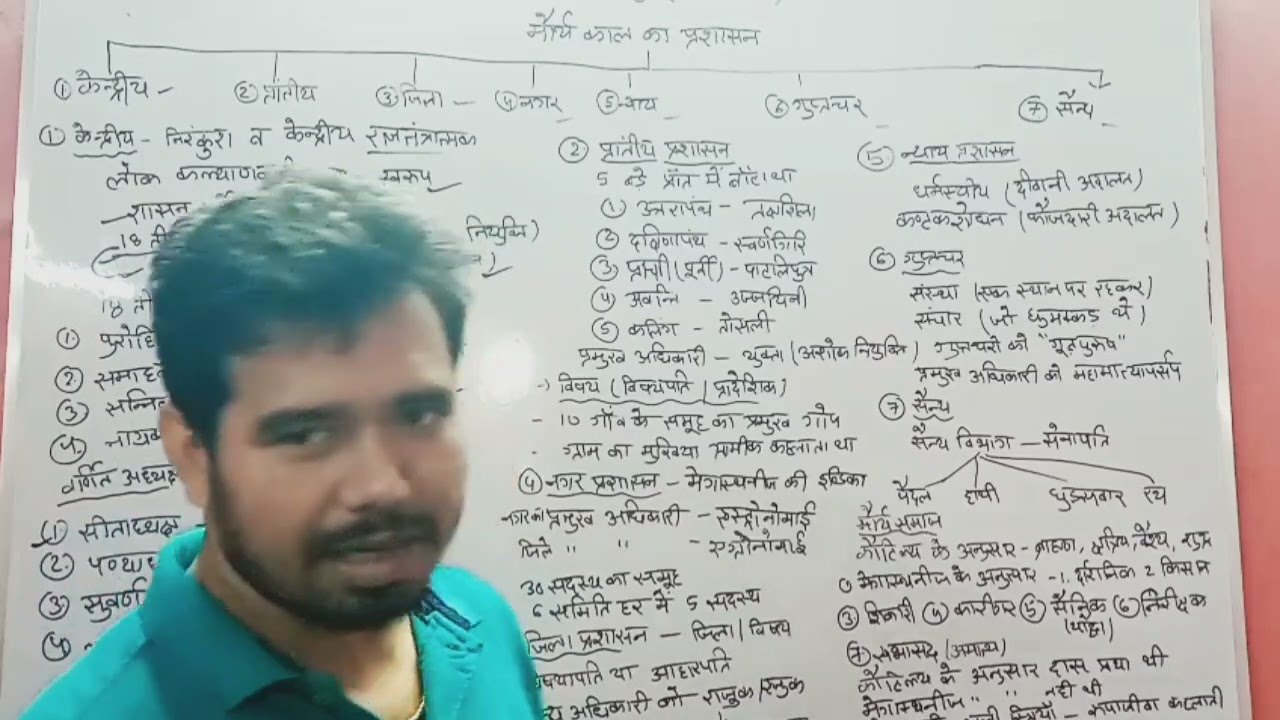 मौर्य काल का प्रशासन
① केन्द्रीय -
② प्रांतीय
③ जिला -
④ नगर -
⑤ न्याय
⑥ गुप्तचर -
⑦ सैन्य -
① केन्द्रीय - निरंकुश व केन्द्रीय राजतंत्रात्मक
लोक स्वरूप
शासन
18 नियुक्ति)
18
① पुरोहि
② समाह
③ सन्नि
④ नायक
वर्णित अध्यक्ष
① सीताध्यक्ष
② पण्या
③ सुवर्ण
④
② प्रांतीय प्रशासन
5 बड़े प्राँत में बाँटा था
① उत्तरापंथ - तक्षशिला
② दक्षिणापंथ - स्वर्णगिरि
③ प्राची (पूर्वी) - पाटलिपुत्र
④ अवन्ति - उज्जयिनी
⑤ कलिंग - तोसली
प्रमुख अधिकारी - युक्ता (अशोक नियुक्ति)
-) विषय (विषयपति | प्रादेशिक)
- 10 गाँव के समूह का प्रमुख गोप
- ग्राम का मुखिया ग्रामीक कहलाता था
④ नगर प्रशासन - मेगास्थनीज की इण्डिका
नगर का प्रमुख अधिकारी - एस्ट्रोनोमाई
जिले " " - एग्रोनोमाई
30 सदस्य का समूह
6 समिति हर में 5 सदस्य
जिला प्रशासन - जिला | विषय
षयापति या आहारपति
य अधिकारी को राजुक
⑤ न्याय प्रशासन
धर्मस्थीय (दीवानी अदालत)
कण्टकशोधन (फौजदारी अदालत)
⑥ गुप्तचर
संस्था (एक स्थान पर रहकर)
संचार (जो घुमक्कड़ थे)
गुप्तचरो को "गूढ़पुरुष"
प्रमुख अधिकारी को महामात्यापर्सप
⑦ सैन्य
सैन्य विभाग - सेनापति
पैदल हाथी घुड़सवार रथ
मौर्य समाज
कौटिल्य के अनुसार - ब्राह्मण, क्षत्रिय, वैश्य, शुद्र
मेगास्थनीज के अनुसार - 1. दार्शनिक 2 किसान
③ शिकारी ④ कारीगर ⑤ सैनिक ⑥ निरीक्षक
(योद्धा)
⑦ सभासद (अमात्य)
कौटिल्य के अनुसार दास प्रथा थी
मेगास्थनीज " " नही थी
- रूपाजीवा कहलाती